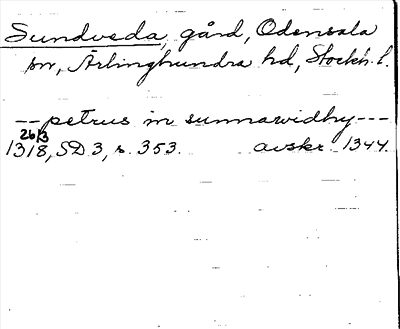 Sundveda, gård, Odensala
sn, Ärlinghundra hd, Stockh. l.
-- petrus in sunnawidhy ---
26/3
1318, SD 3, s. 353. avskr. 1344.